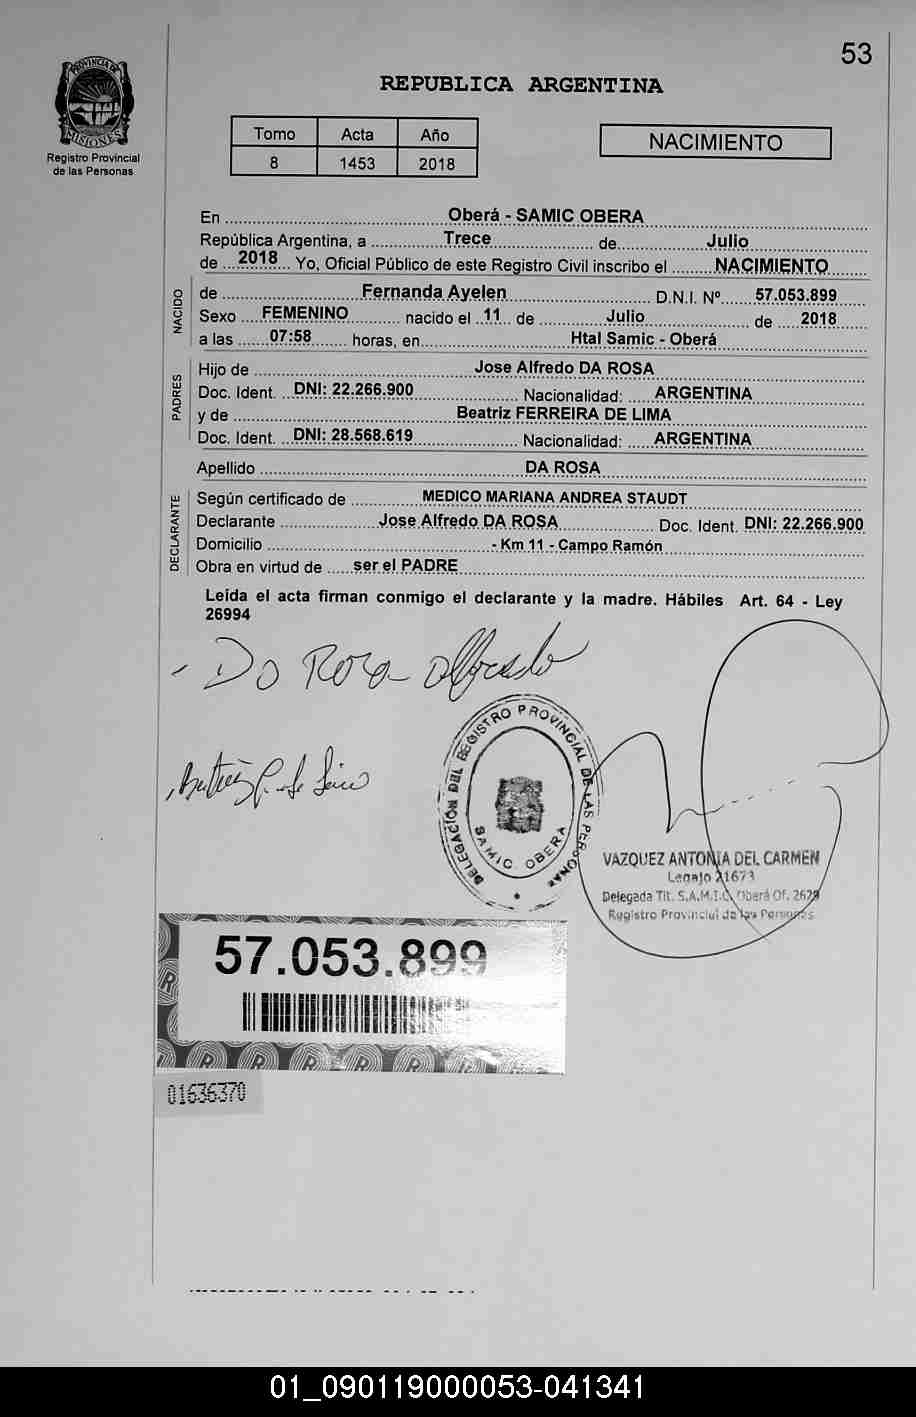 53
PROVINCIA DE
MISIONES
Registro Provincial
de las Personas
REPUBLICA ARGENTINA
Tomo Acta Año
8 1453 2018
NACIMIENTO
En ... Oberá - SAMIC OBERA
República Argentina, a ... Trece ... de ... Julio
de ... 2018 ... Yo, Oficial Público de este Registro Civil inscribo el ... NACIMIENTO
NACIDO
de ... Fernanda Ayelen ... D.N.I. Nº ... 57.053.899
Sexo ... FEMENINO ... nacido el ... 11 ... de ... Julio ... de ... 2018
a las ... 07:58 ... horas, en ... Htal Samic - Oberá
PADRES
Hijo de ... Jose Alfredo DA ROSA
Doc. Ident. ... DNI: 22.266.900 ... Nacionalidad: ... ARGENTINA
y de ... Beatriz FERREIRA DE LIMA
Doc. Ident. ... DNI: 28.568.619 ... Nacionalidad: ... ARGENTINA
Apellido ... DA ROSA
DECLARANTE
Según certificado de ... MEDICO MARIANA ANDREA STAUDT
Declarante ... Jose Alfredo DA ROSA ... Doc. Ident. DNI: 22.266.900
Domicilio ... - Km 11 - Campo Ramón
Obra en virtud de ... ser el PADRE
Leída el acta firman conmigo el declarante y la madre. Hábiles Art. 64 - Ley
26994
Da Rosa Alfredo
DELEGACIÓN DEL REGISTRO PROVINCIAL DE LAS PERSONAS
SAMIC OBERA
VAZQUEZ ANTONIA DEL CARMEN
Legajo 21673
Delegada Tit. S.A.M.I.C. Oberá Of. 2629
Registro Provincial de las Personas
57.053.899
01636370
01_090119000053-041341